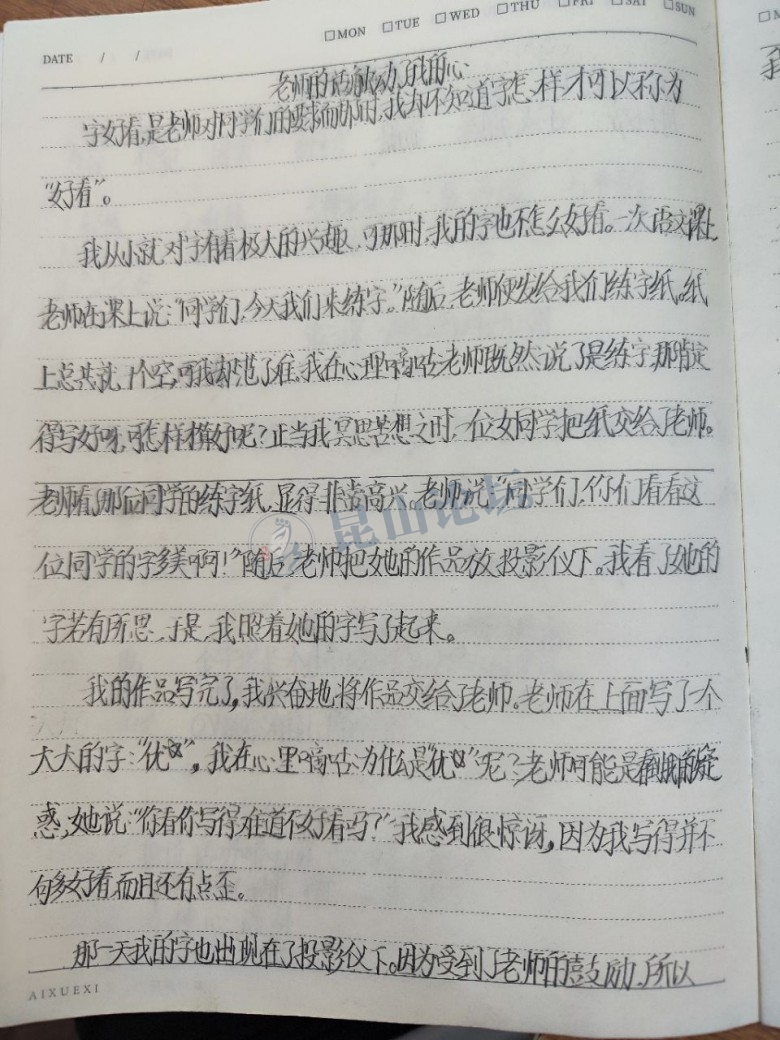 DATE / /
□MON □TUE □WED □THU □FRI □SAT □SUN
老师的话触动了我的心
字好看,是老师对同学们的要求而那时,我却不知道字怎样才可以称为
“好看”。
我从小就对字有着极大的兴趣,可那时,我的字也不怎么好看。一次语文课上
老师在课上说:“同学们,今天我们来练字。”随后,老师便发给我们练字纸。纸
上总共就 个空,可我却犯了难,我在心理嘀咕:老师既然说了是练字,那肯定
得写好呀,可怎样 好呢?正当我冥思苦想之时,一位女同学把纸交给了老师。
老师看了那位同学的练字纸,显得非常高兴。老师说:“同学们,你们看看这
位同学的字多美啊!”随后,老师把她的作品放投影仪下。我看了她的
字若有所思,于是,我照着她的字写了起来。
我的作品写完了,我兴奋地将作品交给了老师。老师在上面写了一个
大大的字:“优”,我在心里嘀咕:为什么是“优”呢?老师可能是看出我的疑
惑,她说:“你看你写得难道不好看吗?”我感到很惊讶,因为我写得并不
够好看,而且还有点歪。
那一天我的字也出现在了投影仪下。因为受到了老师的鼓励,所以
AIXUEXI
昆山论坛